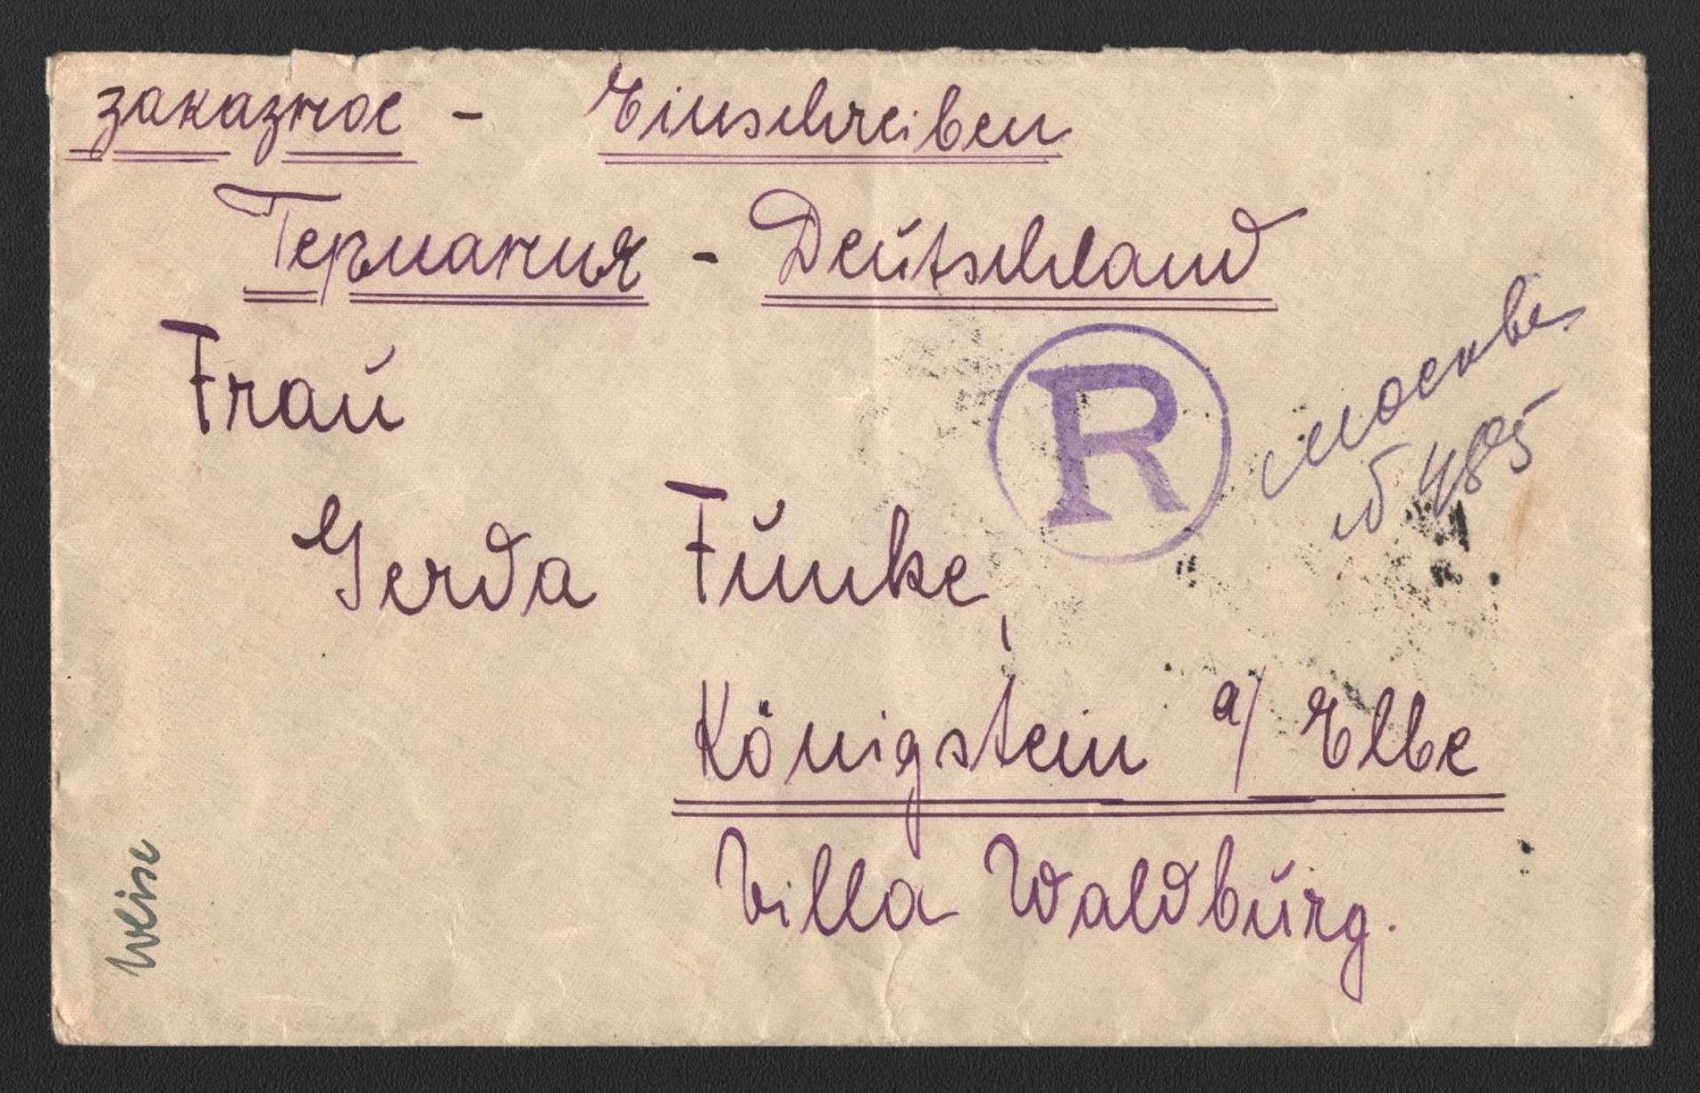 заказное - Einschreiben
Германия - Deutschland
Frau
R
Gerda Funke,
Königstein a/ Elbe
Villa Waldburg.
Weise